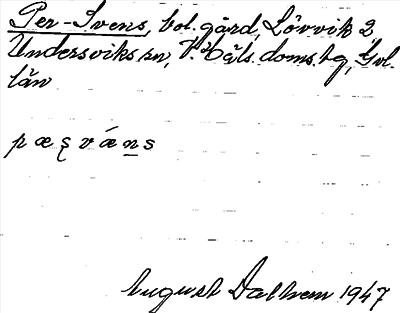 Per-Svens, bol. gård, Lörvik 2
Undersviks sn, V. Häls. doms. hg, Gvl.
län
p æ ʂ v ǽ n s
August Dalhem 1947